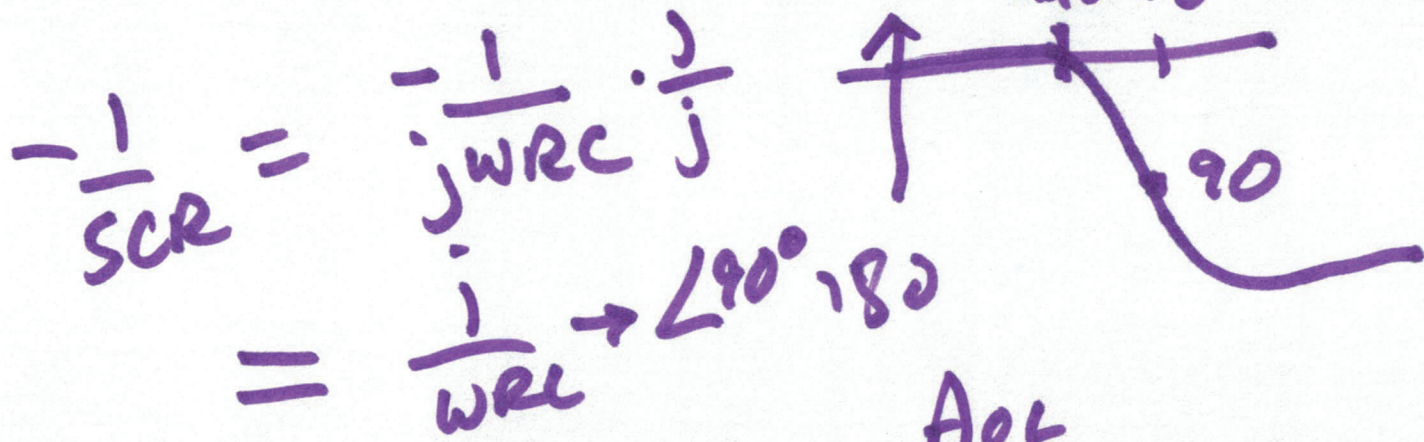 -1/SCR = -1/jWRC · j/j
= j/WRC → ∠90° 180
90
AOL